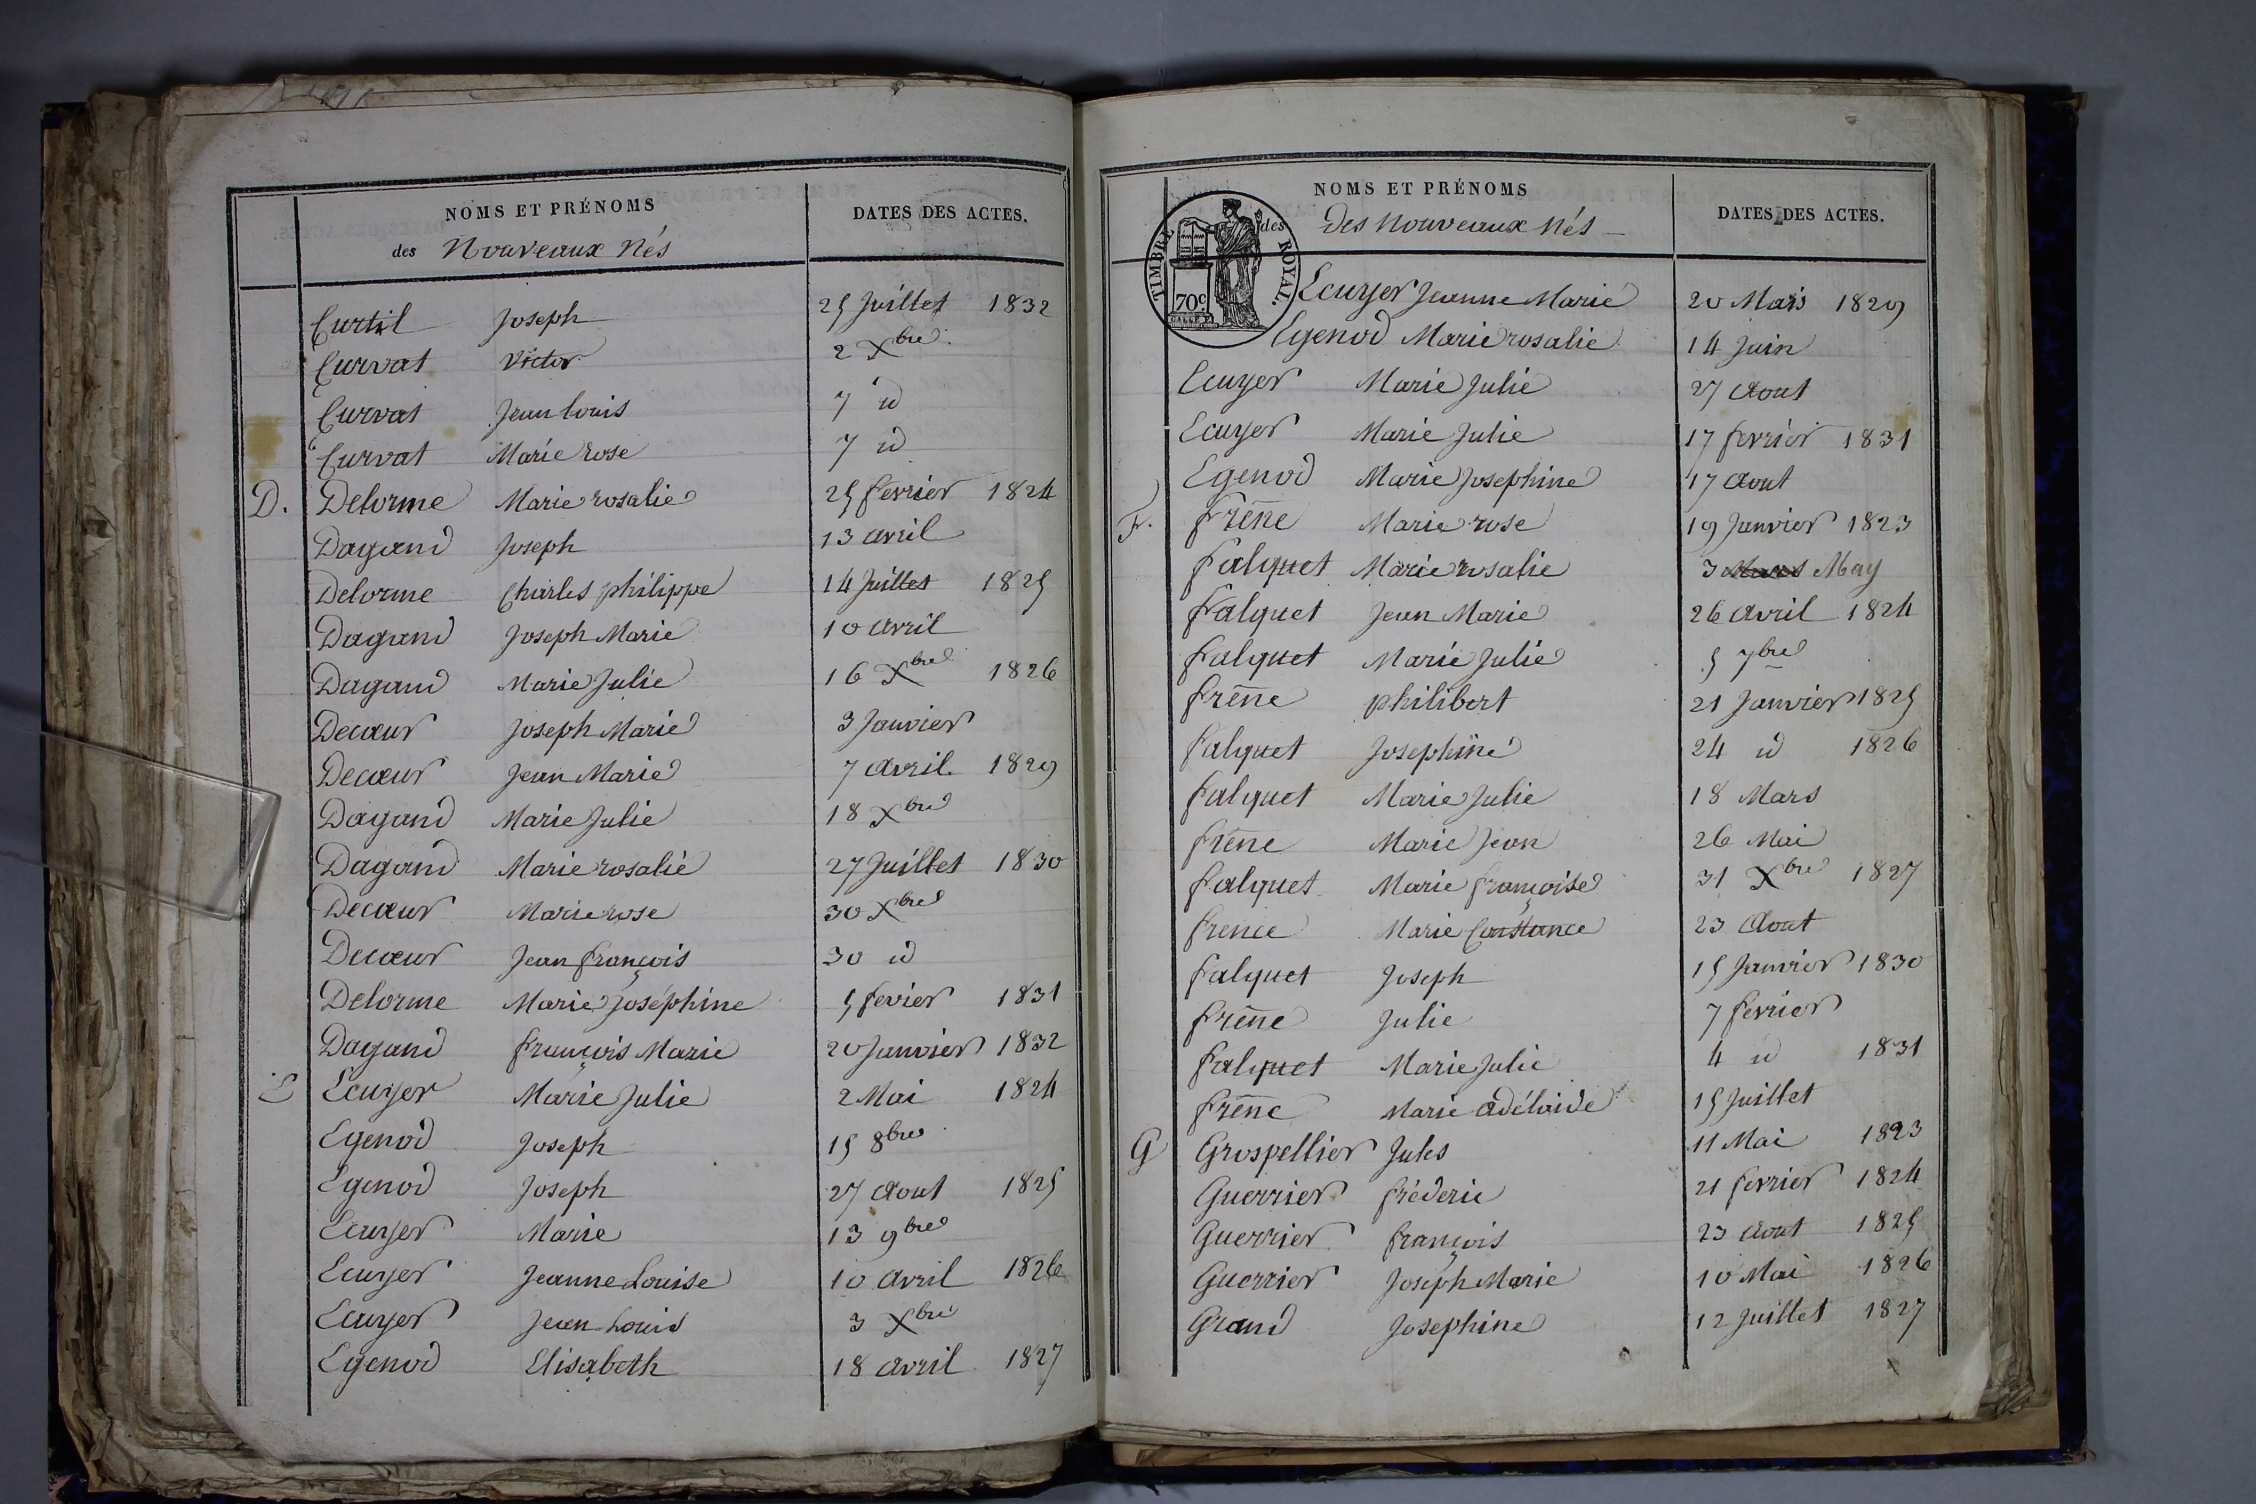 NOMS ET PRÉNOMS
DATES DES ACTES.
des Nouveaux Nés
Curtil Joseph 25 Juillet 1832
Curvat Victor 2 Xbre
Curvat Jean Louis 7 id
Curvat Marie rose 7 id
D. Delorme Marie rosalie 25 fevrier 1824
Dagand Joseph 13 avril
Delorme Charles philippe 14 Juillet 1825
Dagand Joseph Marie 10 avril
Dagand Marie Julie 16 Xbre 1826
Decœur Joseph Marie 3 Janvier
Decœur Jean Marie 7 avril 1829
Dagand Marie Julie 18 Xbre
Dagand Marie rosalie 27 Juillet 1830
Decœur Marie rose 30 Xbre
Decœur Jean françois 30 id
Delorme Marie Joséphine 5 fevier 1831
Dagand françois Marie 20 Janvier 1832
E Ecuyer Marie Julie 2 Mai 1824
Egenod Joseph 15 8bre
Egenod Joseph 27 Aout 1825
Ecuyer Marie 13 9bre
Ecuyer Jeanne Louise 10 avril 1826
Ecuyer Jean Louis 3 Xbre
Egenod Elisabeth 18 avril 1827
NOMS ET PRÉNOMS
DATES DES ACTES.
des
Des Nouveaux Nés
TIMBRE ROYAL.
70c
Ecuyer Jeanne Marie 20 Mars 1829
Egenod Marie rosalie 14 Juin
Ecuyer Marie Julie 27 Aout
Ecuyer Marie Julie 17 fevrier 1831
Egenod Marie Josephine 17 Aout
F. frêne Marie rose 19 Janvier 1823
Falquet Marie rosalie 3 Mars May
Falquet Jean Marie 26 avril 1824
falquet Marie Julie 5 7bre
frêne philibert 21 Janvier 1825
falquet Josephine 24 id 1826
falquet Marie Julie 18 Mars
frêne Marie Jean 26 Mai
falquet Marie françoise 31 Xbre 1827
frence Marie Constance 23 Aout
falquet Joseph 15 Janvier 1830
frêne Julie 7 fevrier
falquet Marie Julie 4 id 1831
frêne Marie adélaide 15 Juillet
G Grospellier Jules 11 Mai 1823
Guerrier fréderic 21 fevrier 1824
Guerrier françois 23 Aout 1825
Guerrier Joseph Marie 10 Mai 1826
Grand Josephine 12 Juillet 1827